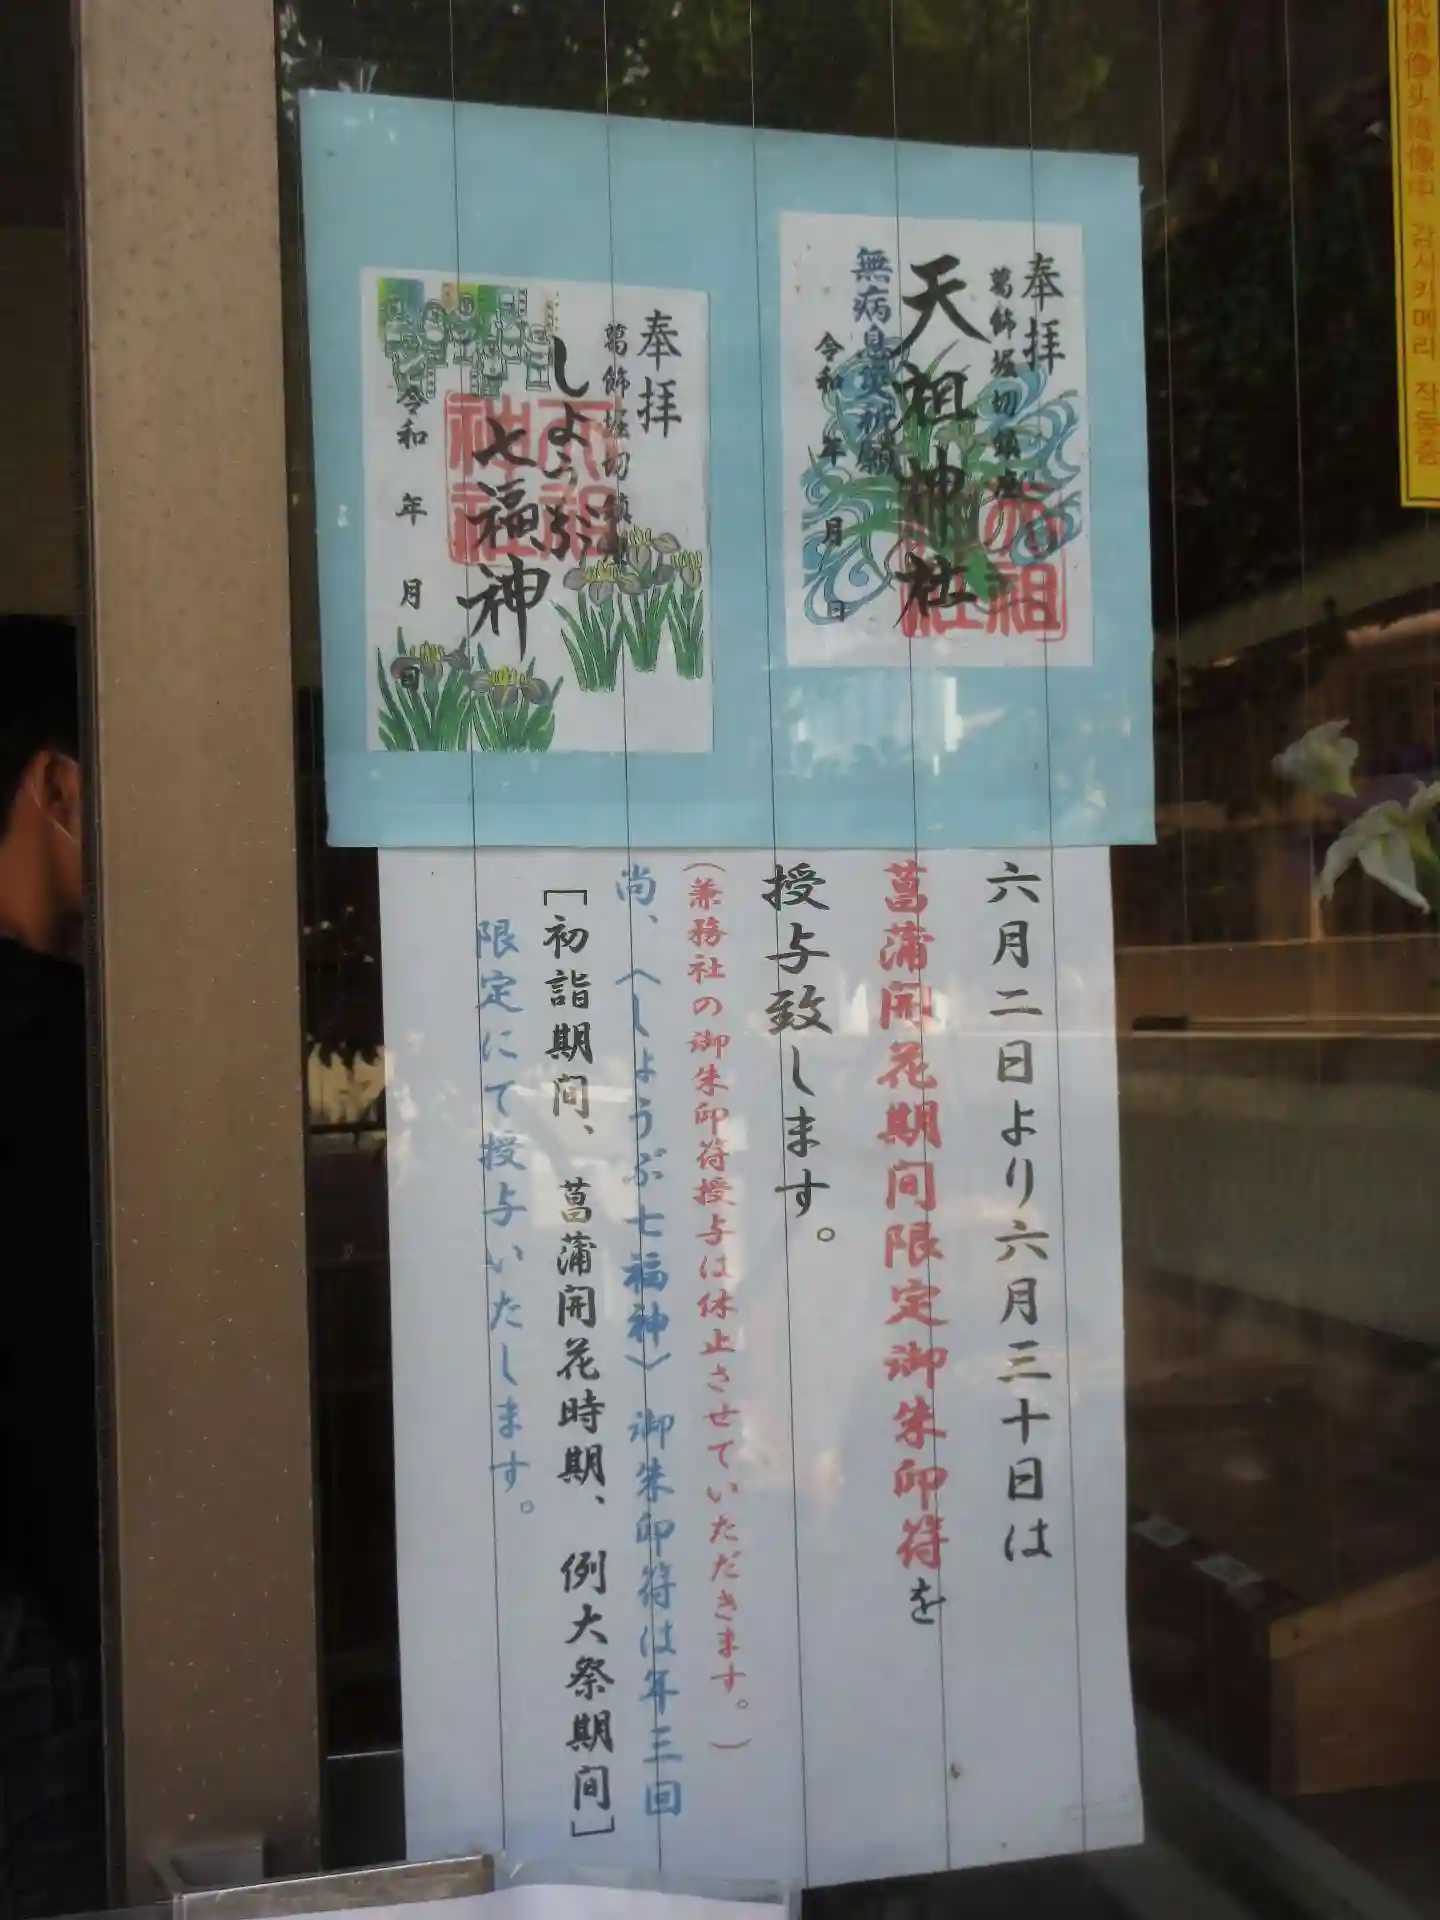 奉拝
葛飾堀切鎮座
天祖神社
無病息災祈願
令和 年 月 日
奉拝
葛飾堀切鎮座
しょうぶ
七福神
令和 年 月 日
六月二日より六月三十日は
菖蒲開花期间限定御朱印符を
授与致します。
(兼務社の御朱印符授与は休止させていただきます。)
尚、〈しょうぶ七福神〉御朱印符は年三回
[初詣期间、菖蒲開花時期、例大祭期间]
限定にて授与いたします。
摄像头摄像中 감시카메라 작동중